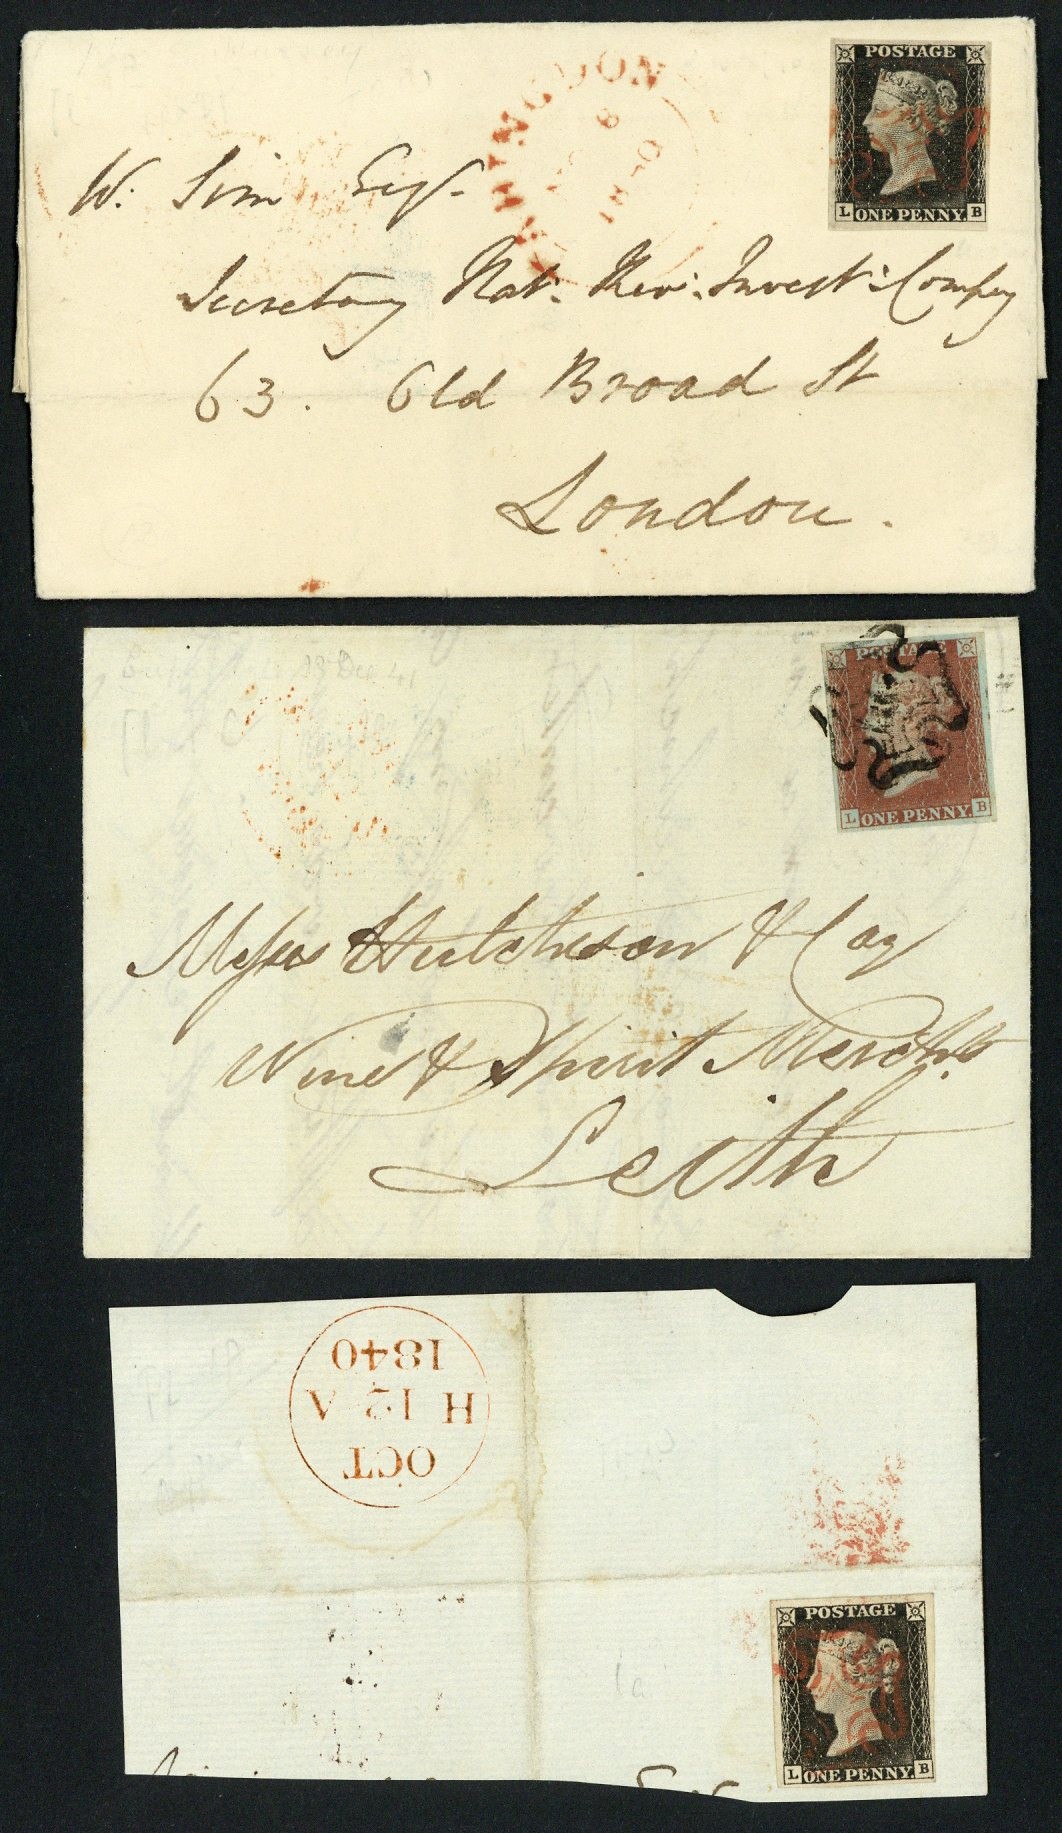 POSTAGE
L ONE PENNY B
W. Sim Esqr.
Secretary Nat. Rev. Invest. Compy
63. Old Broad St
London.
POSTAGE
L ONE PENNY. B
Messrs Hutcheson & Coy
Wine & Spirit Merchts
Leith
OCT
H 12 A
1840
POSTAGE
L ONE PENNY. B